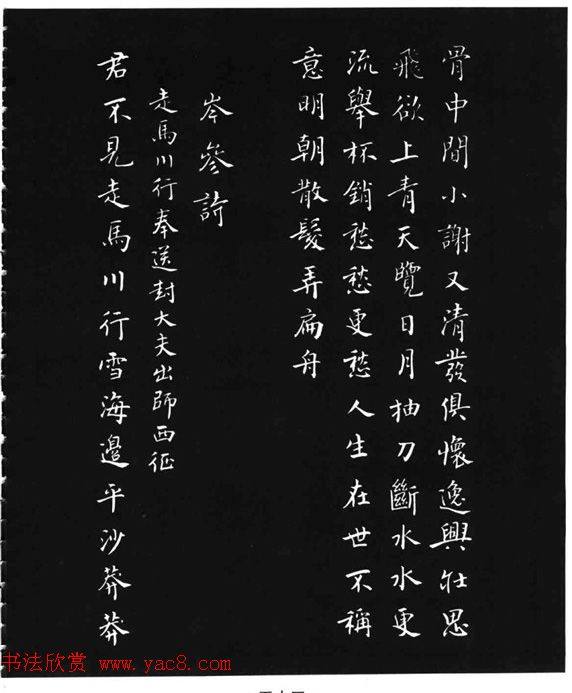 骨中間小謝又清發俱懷逸興壯思
飛欲上青天覽日月抽刀斷水水更
流舉杯銷愁愁更愁人生在世不稱
意明朝散髮弄扁舟
岑參詩
走馬川行奉送封大夫出師西征
君不見走馬川行雪海邊平沙莽莽
书法欣赏 www.yac8.com